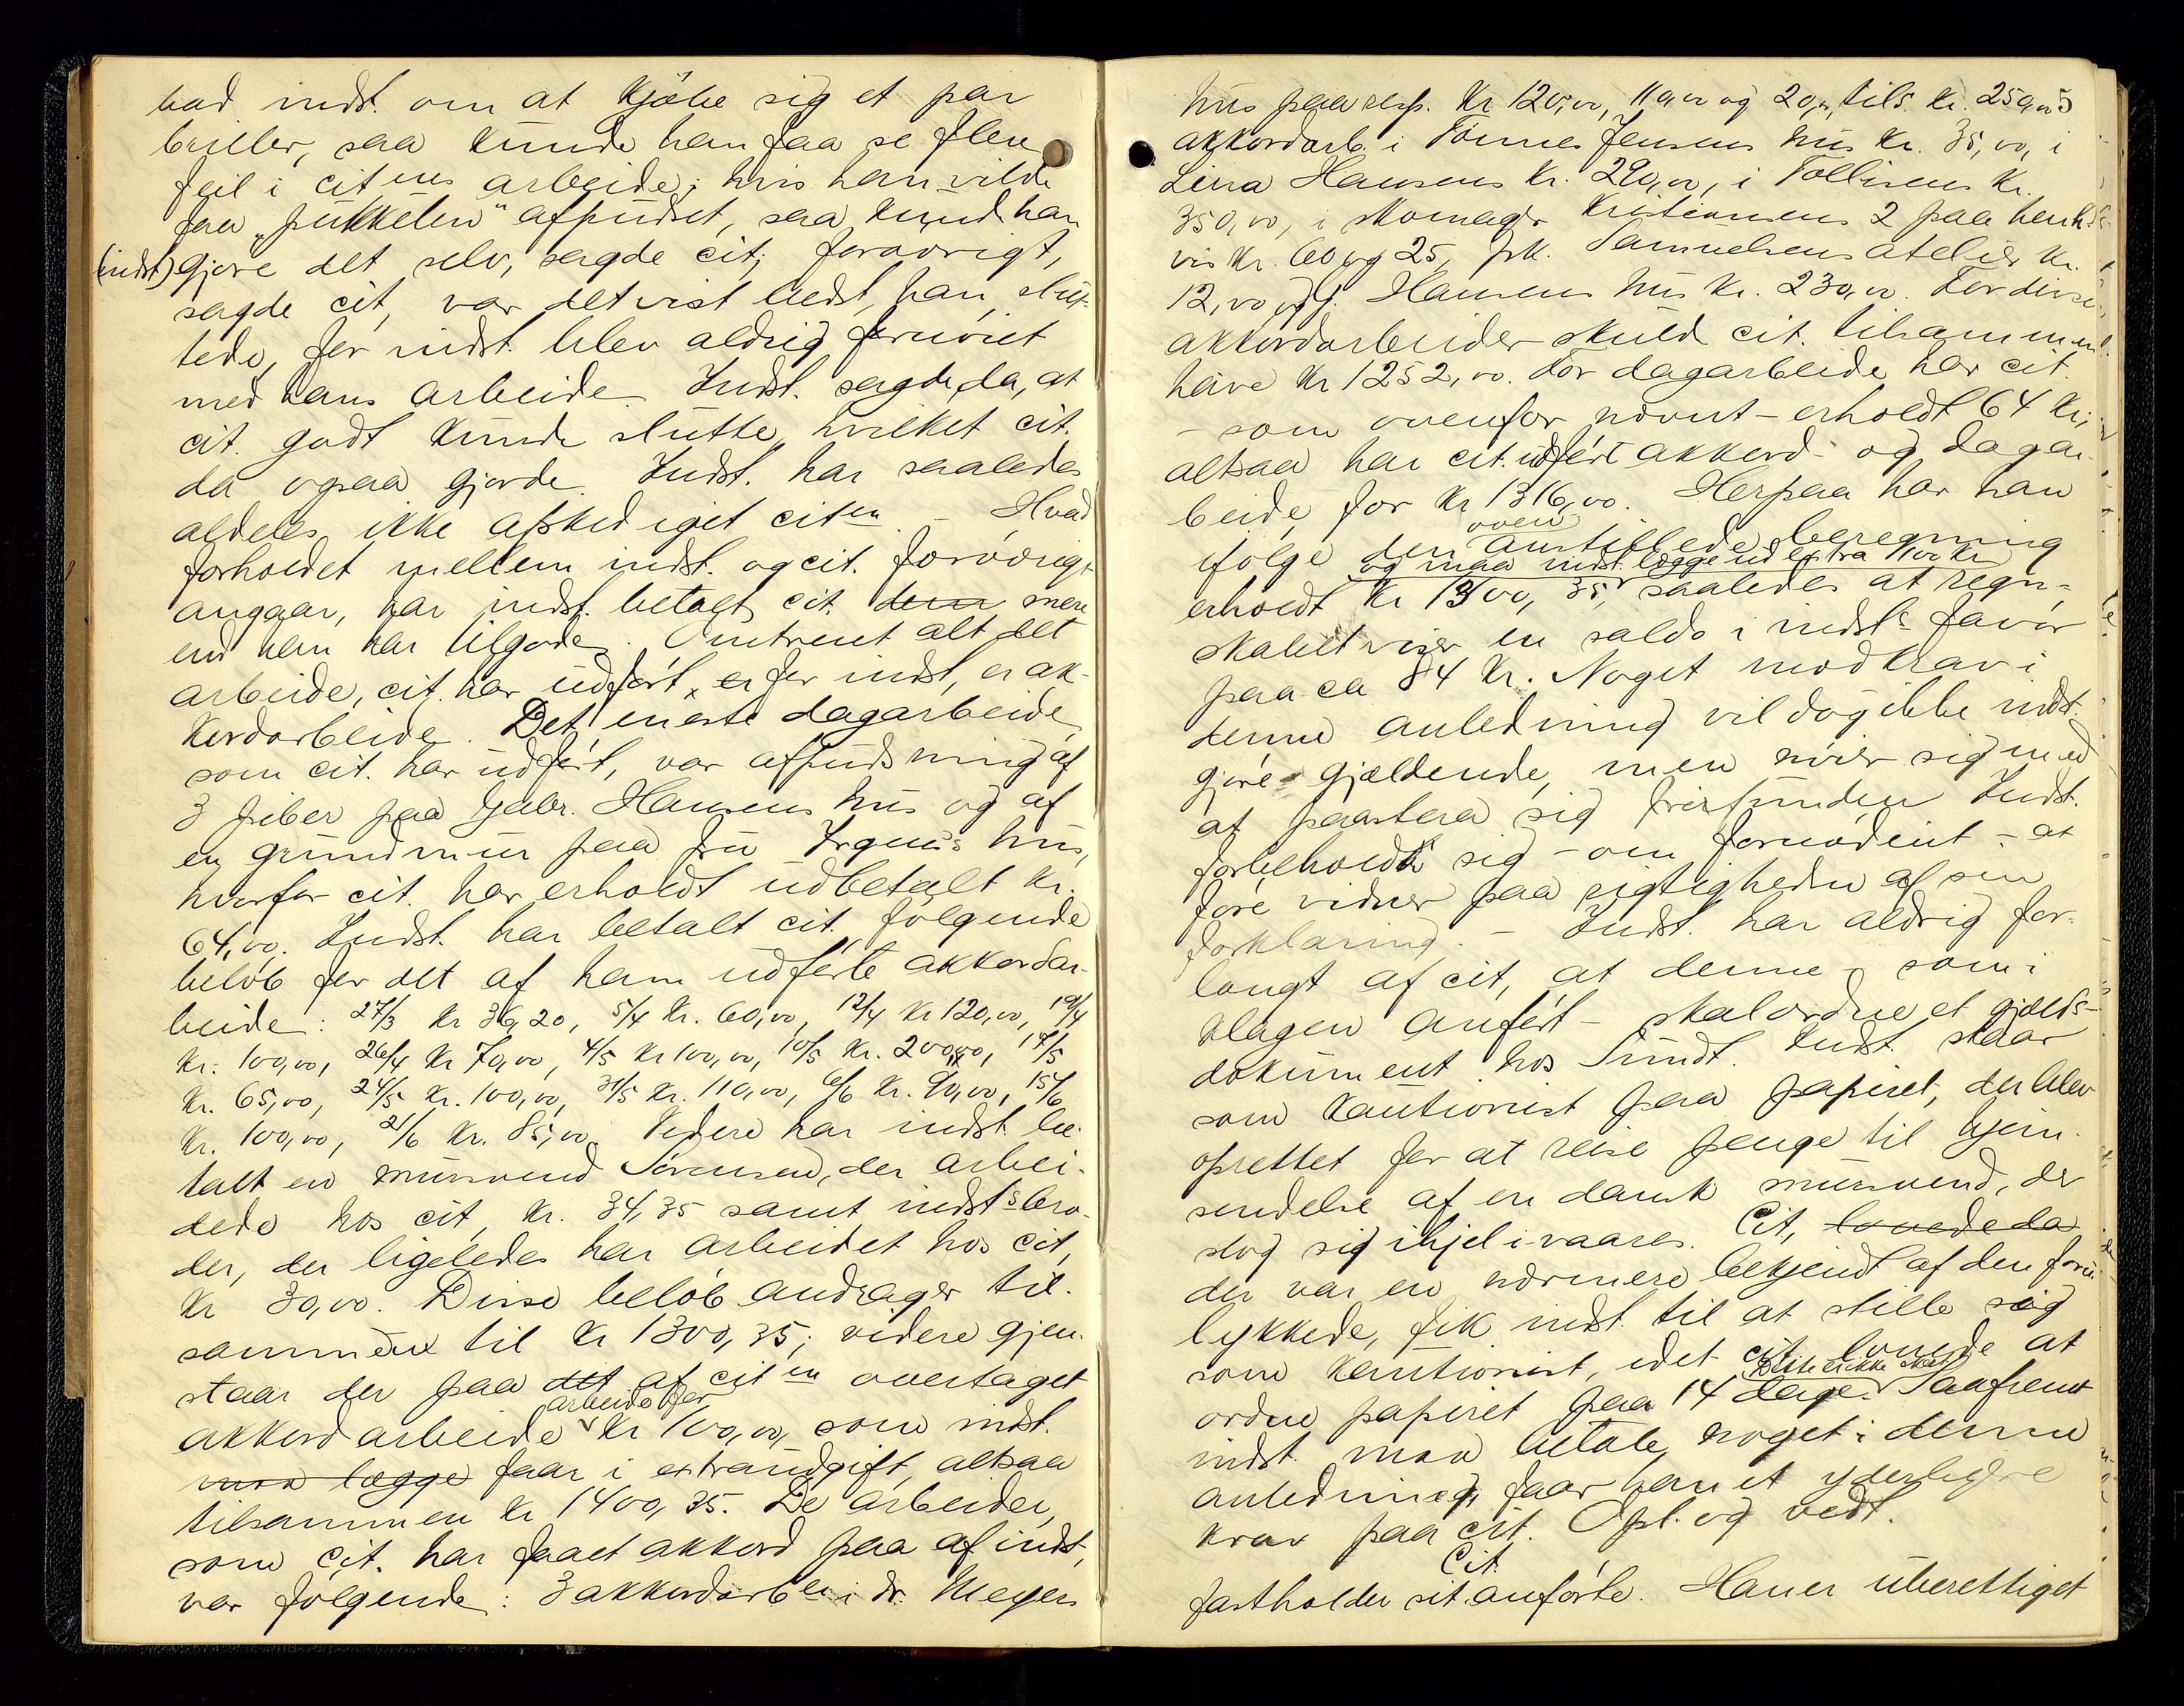 bad indst. om at kjøbe sig et par
briller, saa kunde han faa se flere
feil i citens arbeide; hvis han vilde
faa „pukkelen" afpudset, saa kund han
(indst) gjøre det selv, sagde cit; forøvrigt,
sagde cit, var det vist bedst, han slut-
tede, for indst. blev aldrig fornøiet
med hans arbeide. Indst. sagde da, at
cit. godt kunde slutte, hvilket cit.
da ogsaa gjorde. Indst. har saaledes
aldeles ikke afskediget citen. – Hvad
forholdet mellem indst. og cit. forøvrigt
angaar, har indst. betalt cit. dem mere
end han har tilgode. Omtrent alt det
arbeide, cit. har udført, er for indst, er ak-
kordarbeide. Det eneste dagarbeide,
som cit. har udført, var afpudsning af
3 piber paa Gabr. Hansens hus og af
en grundmur paa fru Irgens's hus,
hvorfor cit. har erholdt udbetalt kr.
64,00. Indst. har betalt cit. følgende
beløb for det af ham udførte akkordar-
beide: 27/3 kr 36,20, 5/4 kr. 60,00, 12/4 kr 120,00, 19/4
kr. 100,00, 26/4 kr 70,00, 4/5 kr 100,00, 10/5 kr. 200,00, 17/5
kr. 65,00, 24/5 kr. 100,00, 31/5 kr. 110,00, 6/6 kr. 90,00, 15/6
kr. 100,00, 21/6 kr. 85,00. Videre har indst. be-
talt en mursvend Sørensen, der arbei-
dede hos cit, kr. 34,35 samt indst's bro-
der, der ligeledes har arbeidet hos cit,
kr 30,00. Disse beløb andrager til-
sammen til kr 1300,35; videre gjen-
staar der paa det af citen overtaget
akkordarbeide arbeide for kr 100,00, som indst.
maa lægge faar i extraudgift, altsaa
tilsammen kr 1400,35. De arbeider,
som cit. har faaet akkord paa af indst,
var følgende: 3 akkordarb. i dr. Meyers
hus paa resp. kr 120,00, 110,00 og 20,00, tils. kr. 250,00
akkordarb. i Tønnes Jensens hus kr. 35,00, i
Lina Hansens kr. 290,00, i Tollisens kr.
350,00, i skomager Kristiansens 2 paa henholds
vis kr. 60 og 25, frk. Samuelsens atelier kr.
12,00 og G. Hansens hus kr. 230,00. For disse
akkordarbeider skuld cit. tilsammen
have kr 1252,00. For dagarbeide har cit.
– som ovenfor nævnt – erholdt 64 kr;
altsaa har cit. udført akkord- og dagar-
beide for kr 1316,00. Herpaa har han
ifølge den oven anstillede beregning
erholdt kr 1300,35, og maa indst. lægge ud extra 100 kr saaledes at regn-
skabet viser en saldo i indsts favør
paa ca 84 kr. Noget modkrav i
denne anledning vil dog ikke indst.
gjøre gjældende, men nøier sig med
at paastaa sig frifunden. Indst.
forbeholdt sig – om fornødent – at
føre vidner paa rigtigheden af sin
forklaring. – Indst. har aldrig for-
langt af cit, at denne – som i
klagen anført – skal ordne et gjælds-
dokument hos Sundt. Indst. staar
som kautionist paa papiret, der blev
oprettet for at reise penge til hjem-
sendelse af en dansk mursvend, der
slog sig ihjel i vaares. Cit, lovede da
der var en nærmere bekjendt af den foru-
lykkede, fik indst. til at stille sig
som kautionist, idet cit. lovede at
ordne papiret paa 14 dage. Dette er ikke skeet. Saafremt
indst. maa betale noget i denne
anledning, faar han et yderligere
krav paa cit. Opl. og vedt.
Cit.
fastholder sit anførte. Han er uberettiget